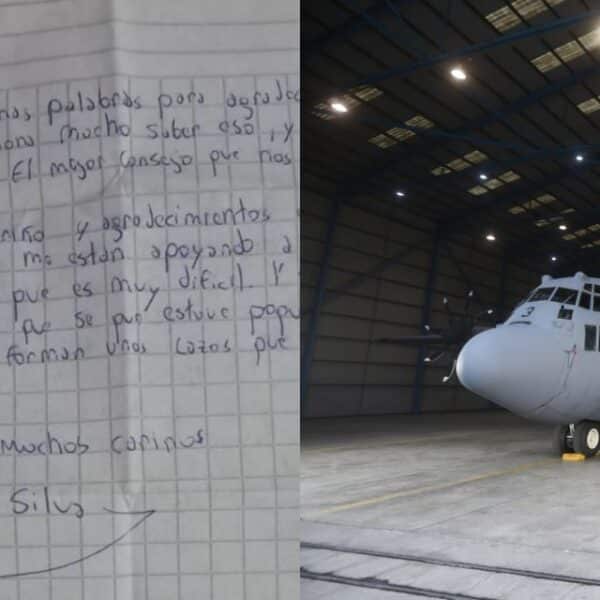 palabras para agradec
mucho saber eso, y
El mayor consejo que nos
y agradecimientos
me estan apoyando a
que es muy dificil. Y
que se que estuve
forman unos lazos que
Muchos cariños
Silva
3